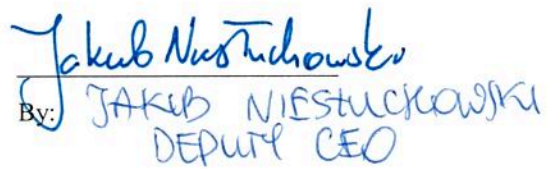 Jakub Niestuchowski
By: JAKUB NIESTUCHOWSKI
DEPUTY CEO